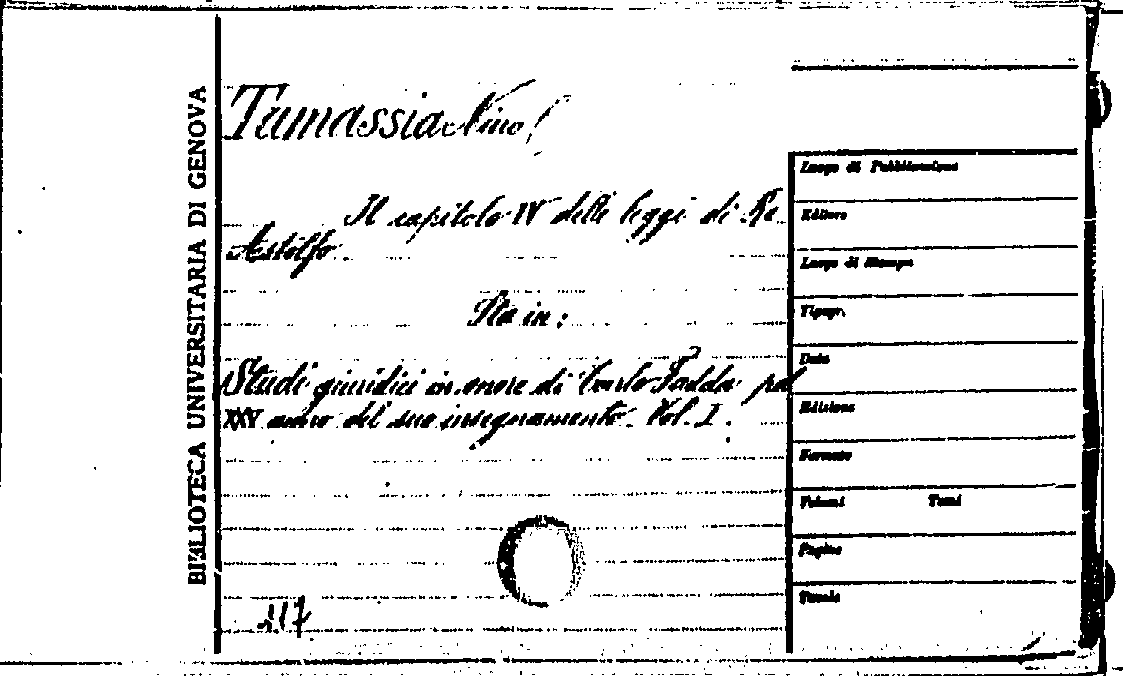 BIBLIOTECA UNIVERSITARIA DI GENOVA
Tamassia Nino
Il capitolo IV delle leggi di Re
Astolfo
Sta in:
Studi giuridici in onore di Carlo Fadda pel
XXV anno del suo insegnamento. Vol. I.
Luogo di Pubblicazione
Editore
Luogo di Stampa
Tipogr.
Data
Edizione
Formato
Volumi Tomi
Pagine
Tavole